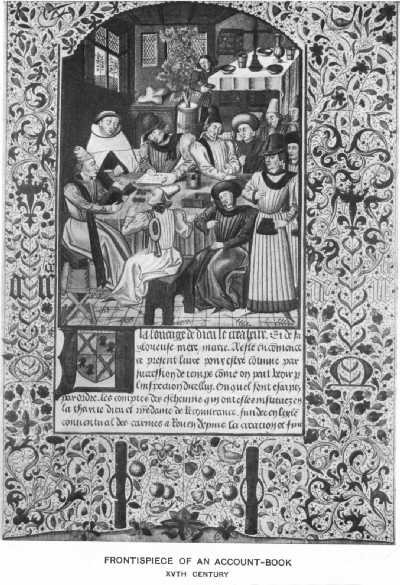 la louenge de dieu le createur. Et de sa
glorieuse mere marie. A este encomence
ce present liure pour estre continue par
succession de temps come on peut veoir p
linspection dicelluy. Onquel sont
par ordre. les comptes des escheuins qui ont estes instituez en
la charite dieu et de Recouurance. fundee en leglise
conuentual des carmes a Rouen depuis la creation et fun
FRONTISPIECE OF AN ACCOUNT-BOOK
XVTH CENTURY